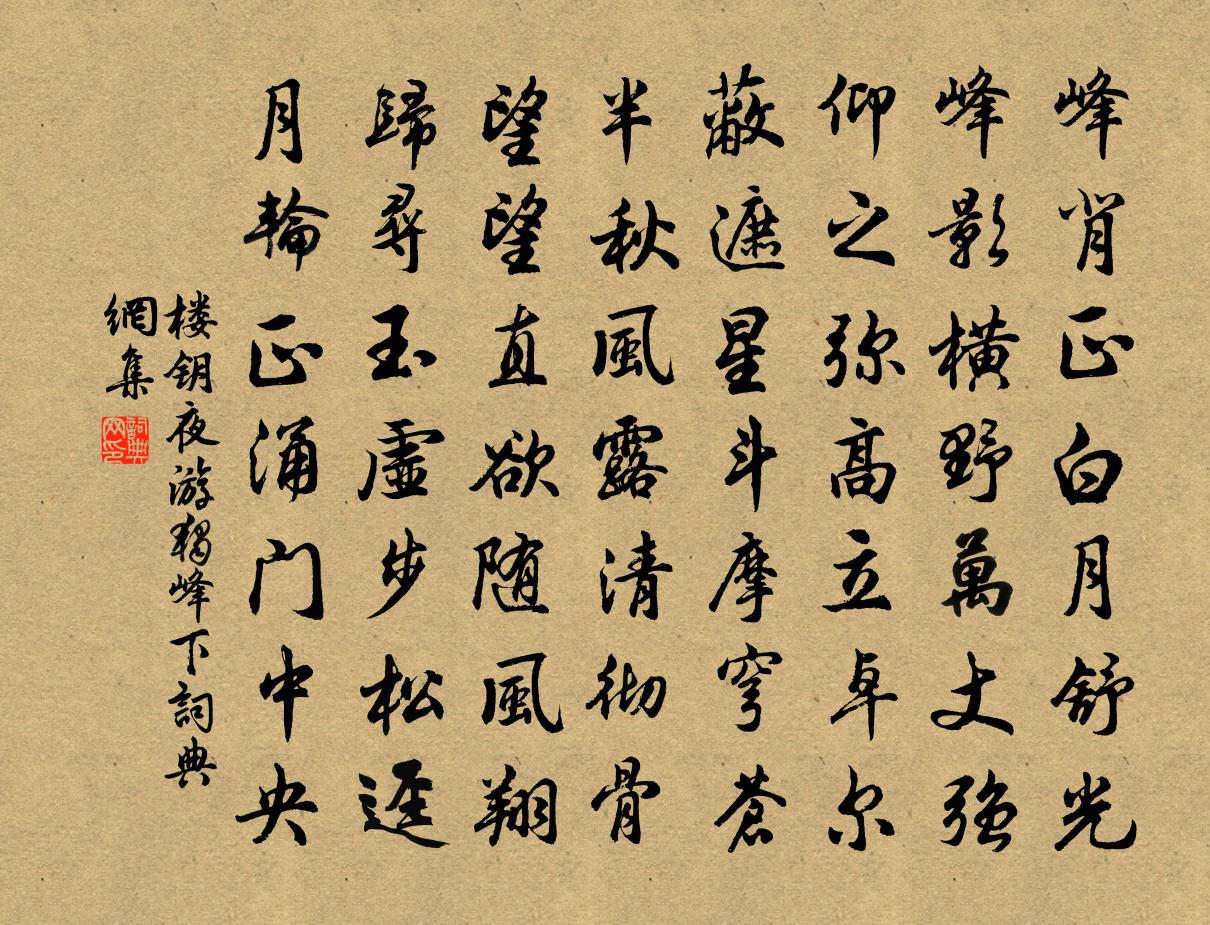 峰肖正白月舒光
峰影橫野萬丈強
仰之弥高立卓尔
蔽遮星斗摩穹蒼
半秋風露清彻骨
望望直欲随風翔
歸尋玉虛步松逕
月輪正涌门中央
楼钥夜游獨峰下詞典
網集
詞典网印